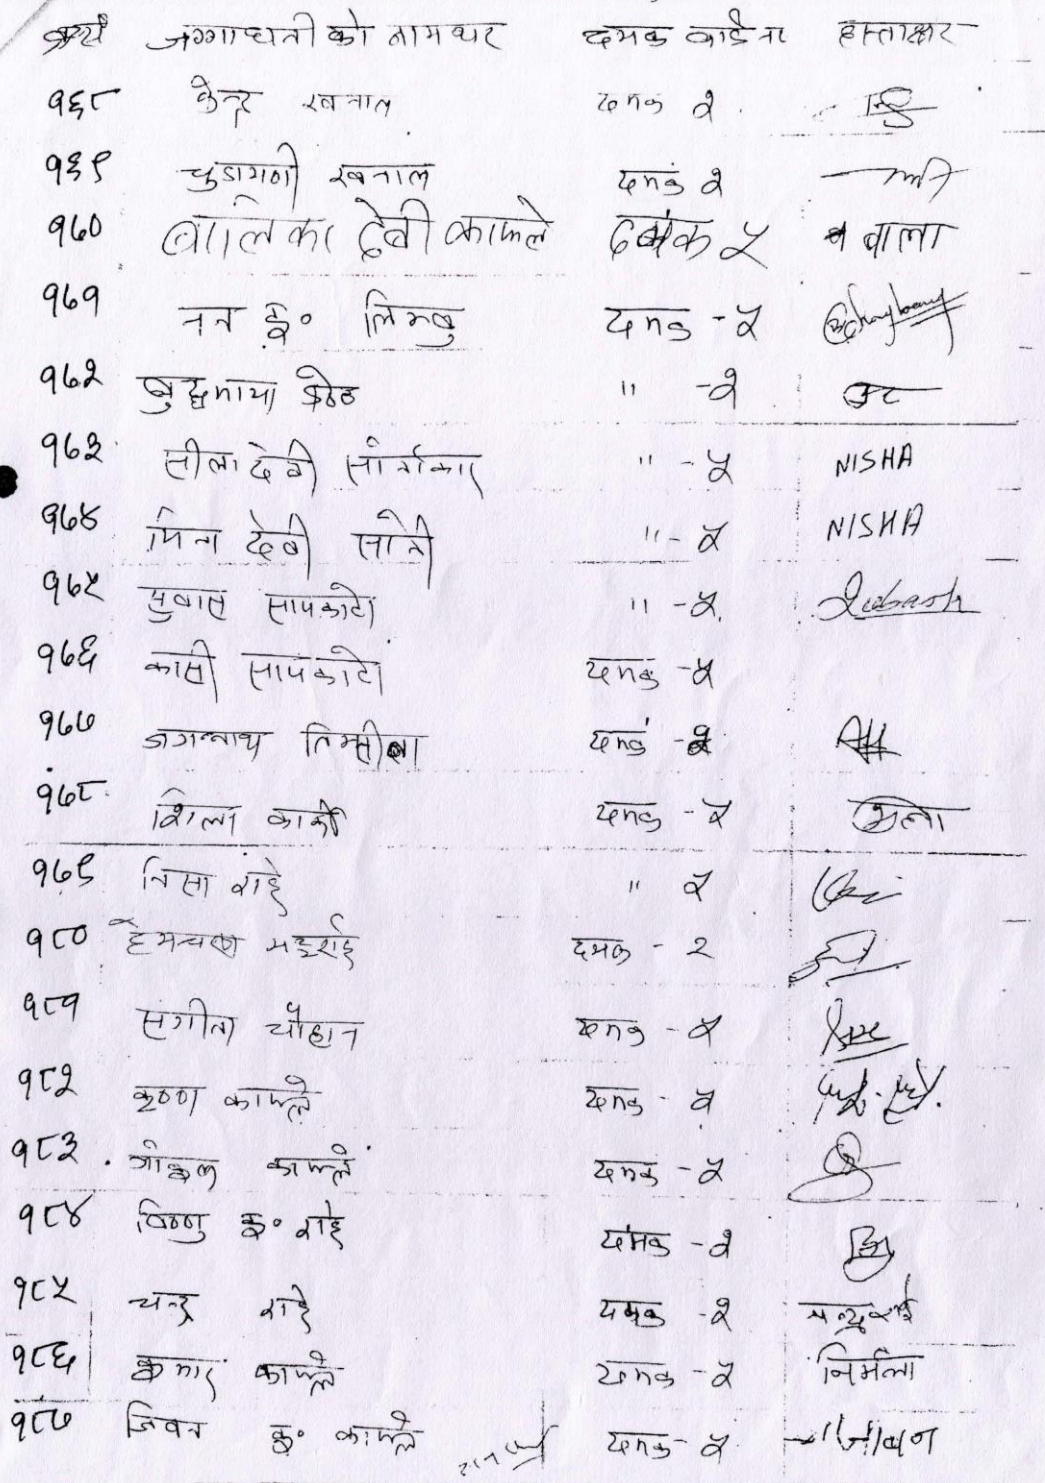 जग्गाधनीको नामथर दमक वार्ड नं हस्ताक्षर
१६८ केन्द्र खनाल दमक २
१६९ चुडामणी खनाल दमक २
१७० बालिका देवी काफ्ले दमक ५ बाला
१७१ कु० लिम्बु दमक - ५
१७२ बुद्धमाया श्रेष्ठ " - २
१७३ सीला देवी " - ५ NISHA
१७४ मिना देवी सोनी " - ५ NISHA
१७५ सुवास सापकोटा " - ५ Subash
१७६ कासी सापकोटा दमक - ५
१७७ जगन्नाथ तिम्सीना दमक - २
१७८ शिला कार्की दमक - ५
१७९ निसा राई " ५
१८० दमक - २
१८१ संगीता चौहान दमक - ५
१८२ कृष्ण काफ्ले दमक - ५
१८३ गोकुल काफ्ले दमक - ५
१८४ विष्णु कु० राई दमक - २
१८५ चन्द्र राई दमक - २ चन्द्र राई
१८६ कुमार काफ्ले दमक - ५ निर्मला
१८७ जिवन कु० काफ्ले दमक - ५